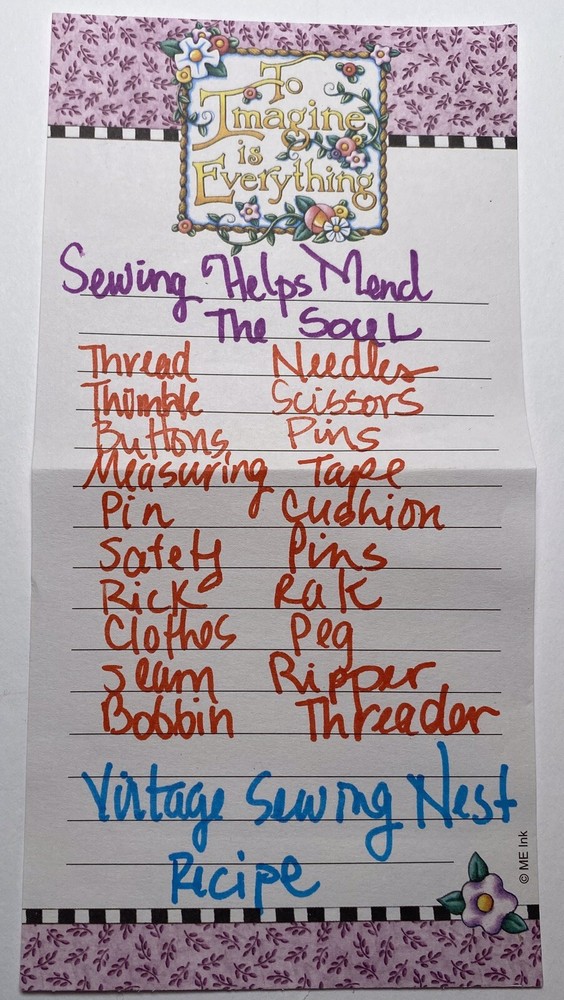 To
Imagine
is
Everything
Sewing Helps Mend
The Soul
Thread Needles
Thimble Scissors
Buttons Pins
Measuring Tape
Pin Cushion
Safety Pins
Rick Rak
Clothes Peg
Seam Ripper
Bobbin Threader
Vintage Sewing Nest
Recipe
© ME Ink